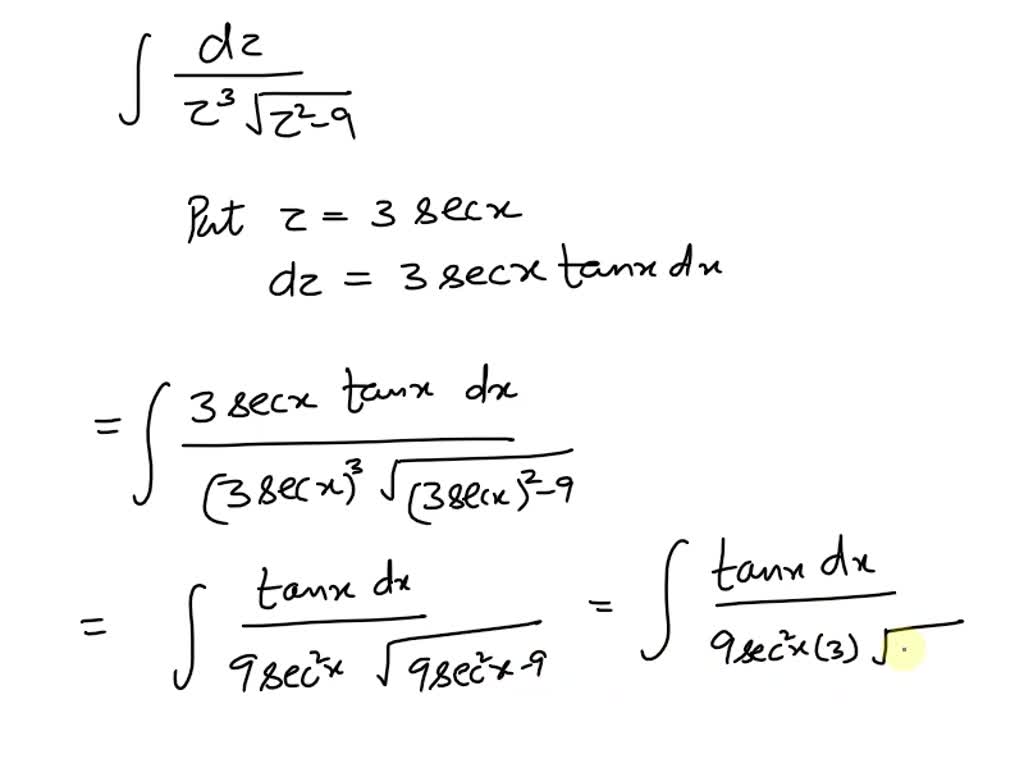 ∫ dz / z³ √(z²-9)
Put z = 3 secx
dz = 3 secx tanx dx
= ∫ 3 secx tanx dx / (3 secx)³ √((3secx)²-9)
= ∫ tanx dx / 9sec²x √(9sec²x-9) = ∫ tanx dx / 9sec²x(3) √